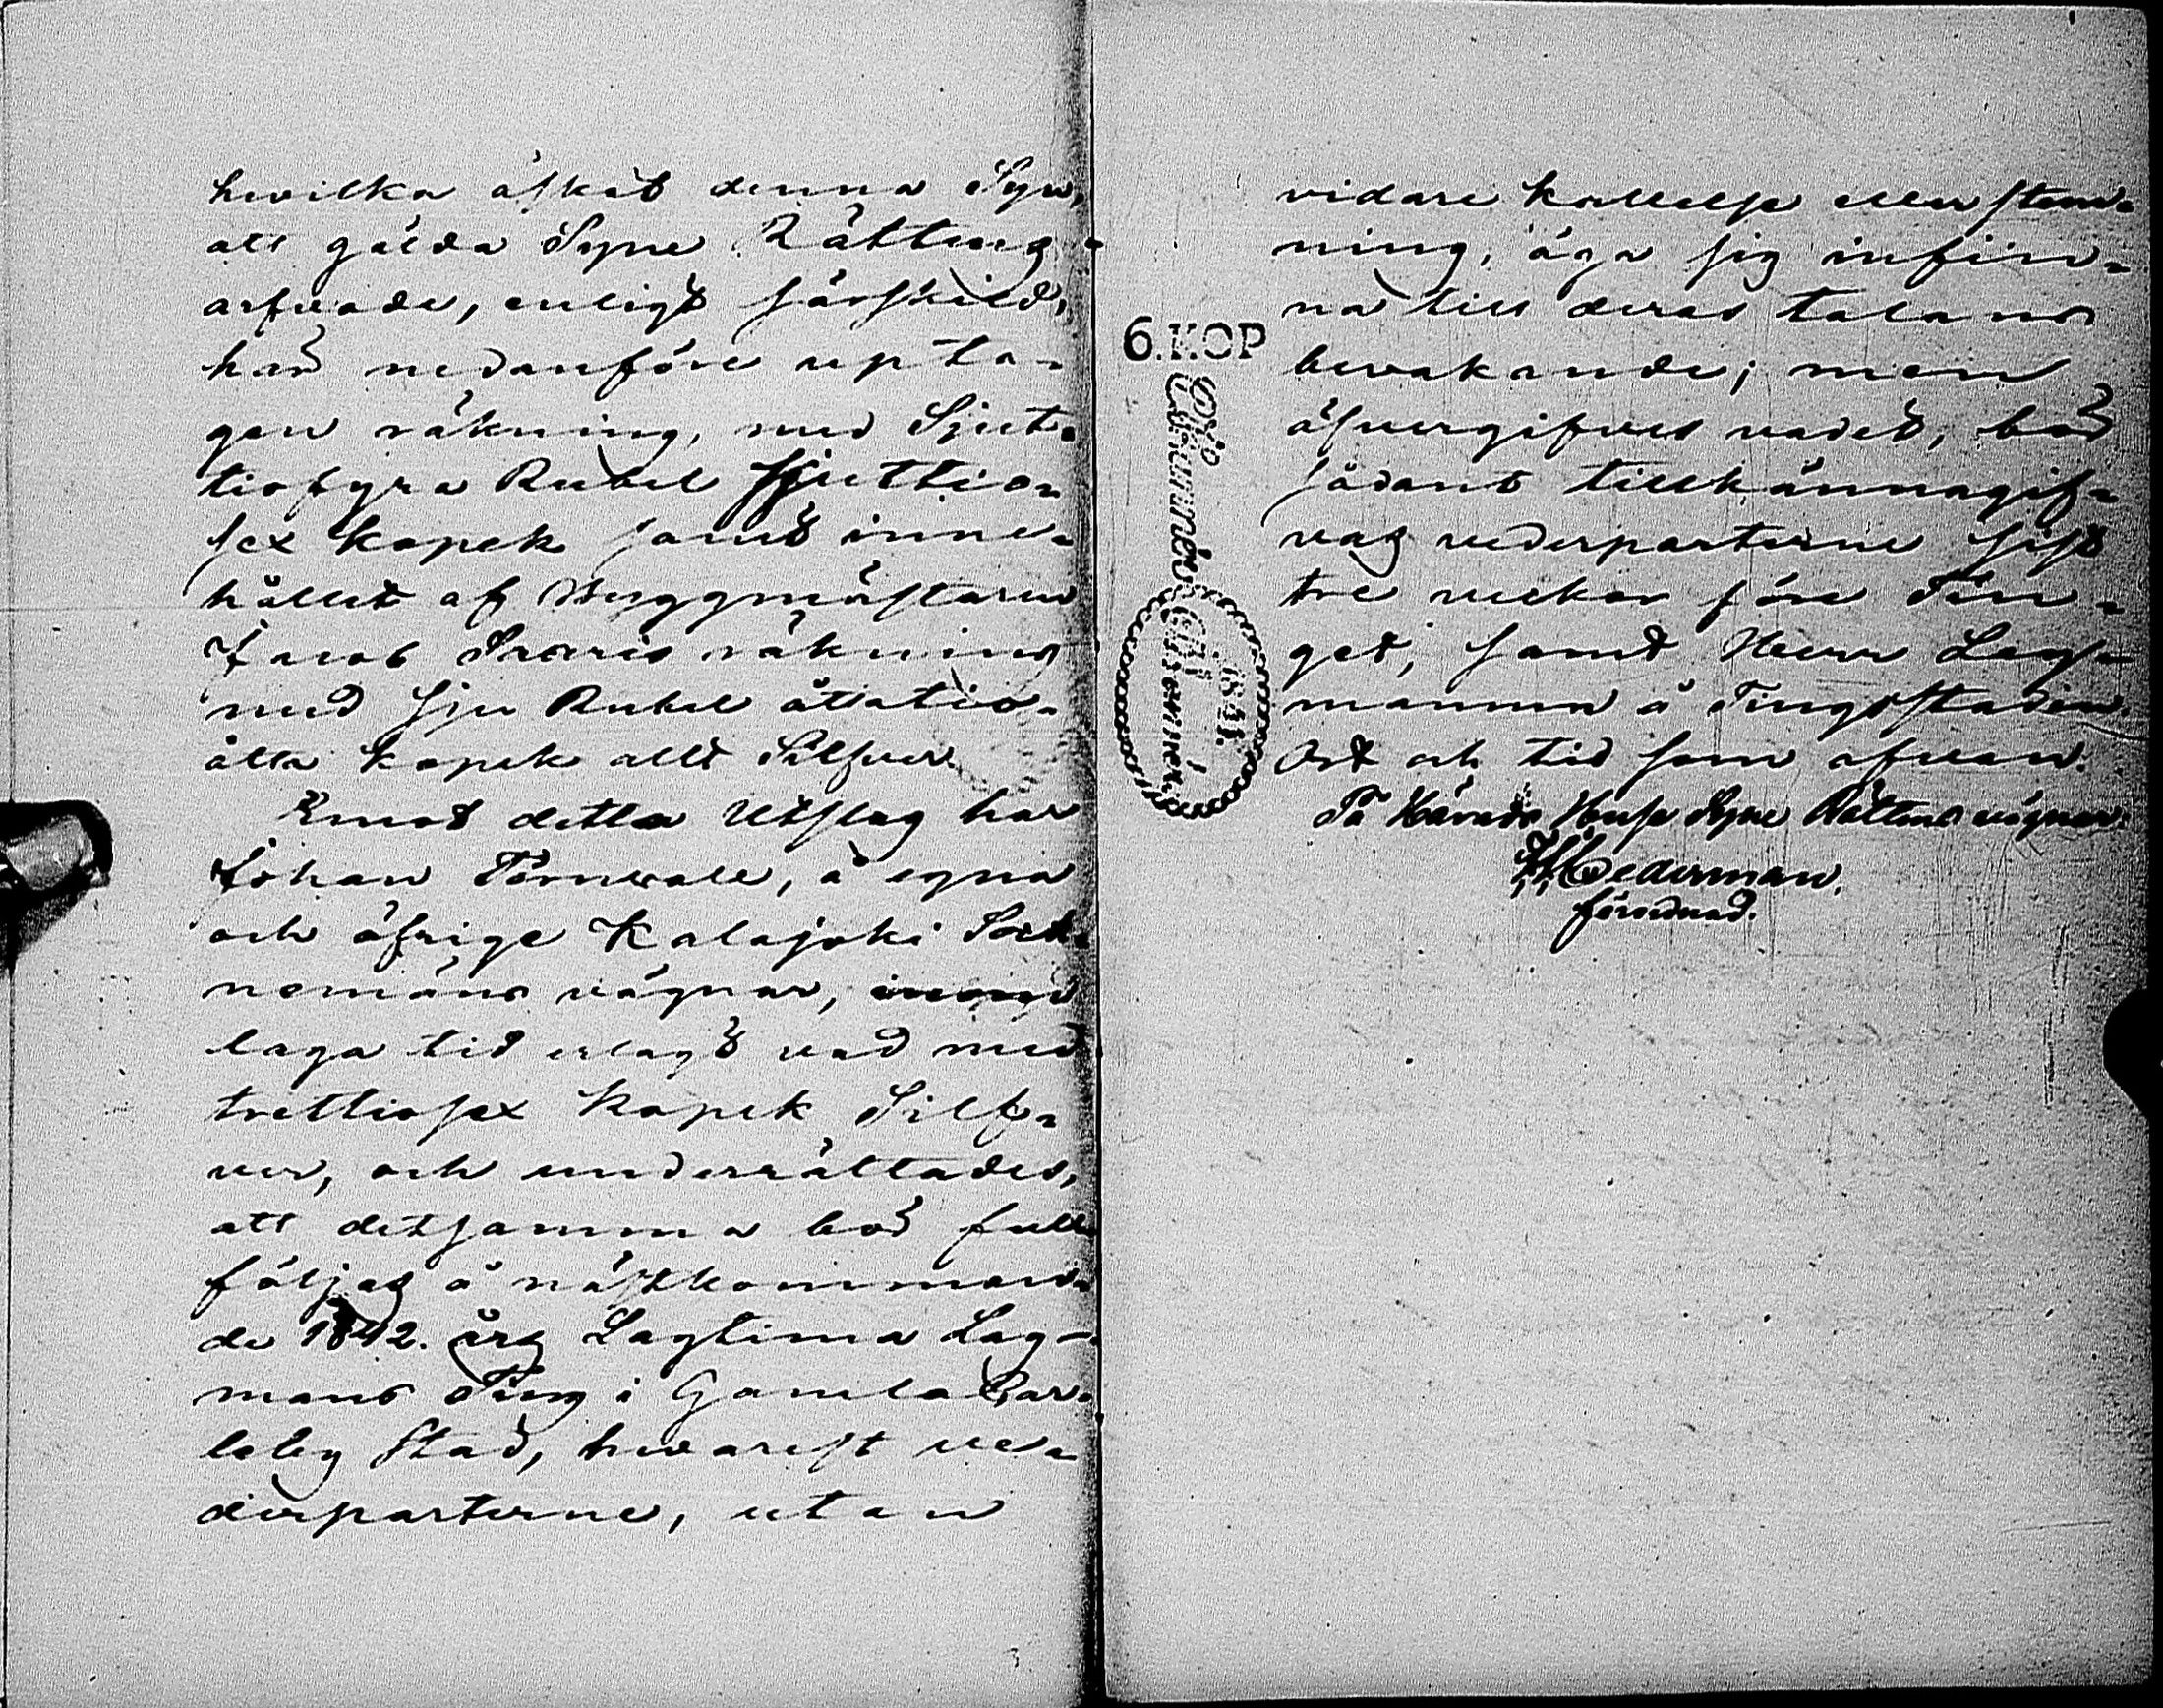 hwilka äskat denna Syn,
att gälda Syne Rättens
arfvode, enligt särskild,
här nedanföre upta-
gen räkning, med Sjut-
tiofyra Rubel Sjuttio-
sex kopek samt inne-
hållet af Byggmästaren
Jacob räkning
med Sju Rubel åttatio-
åtta kopek allt Silfver.
Emot detta Utslag har
Johan Törnwall, å egna
och öfrige Kalajoki Sock-
nemäns vägnar, inom
laga tid erlagt vad med
trettiosex kopek Silf-
ver, och underrättades,
att detsamma bör full-
följas å nästkomman-
de 1842. års Lagtima Lag-
mans Ting i Gamla Car-
leby Stad, hwarest ve-
derparterne, utan
vidare kallelse eller stäm-
ning, äga sig infin-
na till deras talans
bevakande; men
öfvergifves vadet, bör
sådant tillkännagif-
vas vederparterne sist
tre veckor före Tin-
get, samt Herr Lag-
mannen å Tingsstaden.
Ort och tid som ofvan.
På Härads Huse Syne Rättens vägnar:
Cederman.
förordnad.
6. KOP
1841.